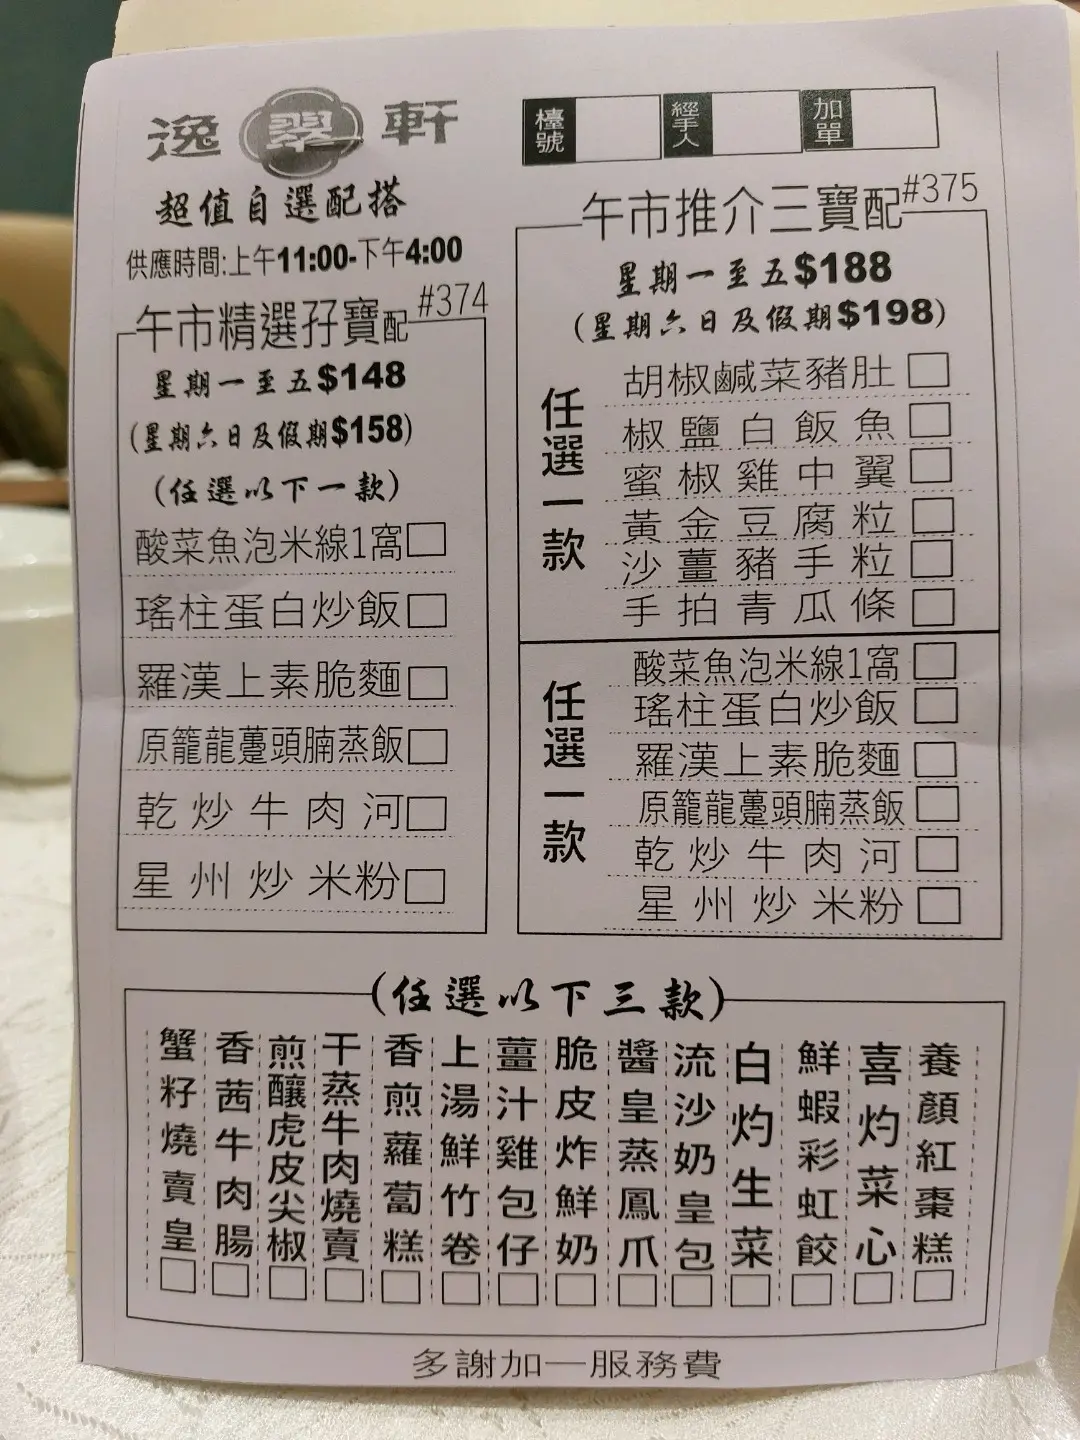 逸翠軒
檯號
經手人
加單
超值自選配搭
供應時間:上午11:00-下午4:00
午市精選孖寶配 #374
星期一至五$148
(星期六日及假期$158)
(任選以下一款)
酸菜魚泡米線1窩
瑤柱蛋白炒飯
羅漢上素脆麵
原籠龍躉頭腩蒸飯
乾炒牛肉河
星州炒米粉
午市推介三寶配 #375
星期一至五$188
(星期六日及假期$198)
任選一款
胡椒鹹菜豬肚
椒鹽白飯魚
蜜椒雞中翼
黃金豆腐粒
沙薑豬手粒
手拍青瓜條
任選一款
酸菜魚泡米線1窩
瑤柱蛋白炒飯
羅漢上素脆麵
原籠龍躉頭腩蒸飯
乾炒牛肉河
星州炒米粉
(任選以下三款)
蟹籽燒賣皇
香茜牛肉腸
煎釀虎皮尖椒
干蒸牛肉燒賣
香煎蘿蔔糕
上湯鮮竹卷
薑汁雞包仔
脆皮炸鮮奶
醬皇蒸鳳爪
流沙奶皇包
白灼生菜
鮮蝦彩虹餃
喜灼菜心
養顏紅棗糕
多謝加一服務費